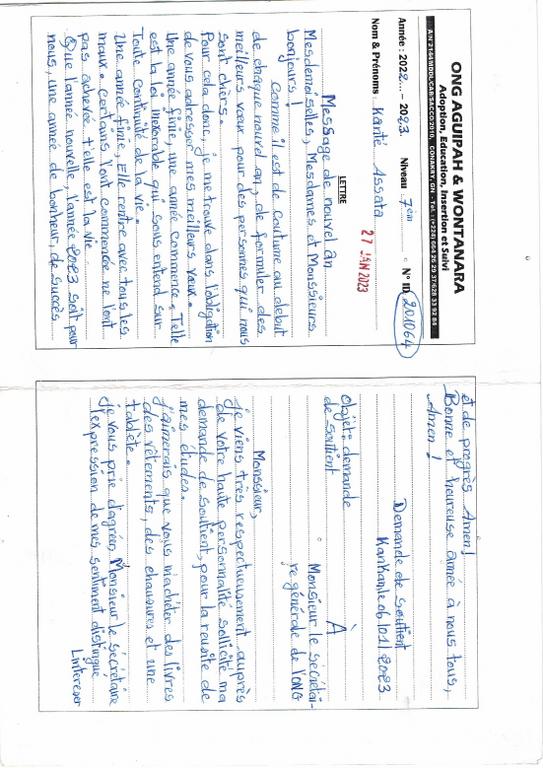 ONG AGUIPAH & WONTANARA
Adoption, Education, Insertion et Suivi
Année : 2022...- 2023. Niveau 7èm N° ID 201064
Nom & Prénoms : Kanté Assata
27 JAN 2023
LETTRE
Message de nouvel an
Mesdemoiselles, Mesdames et Monssieurs
bonjours !
Comme il est de Coutume au debut
de chaque nouvel an, de formuler des
meilleurs vœux pour des personnes qui nous
sont chèrs.
Pour cela donc, je me trouve dans l'obligation
de vous adresser mes meilleurs vœux.
Une année finie, une année Commence. Telle
est la loi inexorable qui sous entend sur
Toute Continuité de la vie.
Une année finie, Elle rentre avec tous les
maux. Certains l'ont Commencée ne l'ont
pas achevée t'elle est la vie.
Que l'année nouvelle, l'année 2023 soit pour
nous, une année de bonheur, de succès
et de progrès Amen!
Bonne et heureuse année à nous tous,
Amen !
Demande de Soutient
Kankan, le 06/01/2023
À
Monsieur le Secrétai-
re générale de l'ONG
Objet: demande
de Soutient
Monssieur,
Je viens très respectueusement auprès
de votre haute personnalité sollicité ma
demande de soutient, pour la reusite de
mes études.
J'aimerais que vous m'achéter des livres
des vêtements, des chaussures et une
tablète.
Je vous prie d'agréer, Monsieur le Sécrétaire
l'expression de mes sentiment distingue
L'intéresser